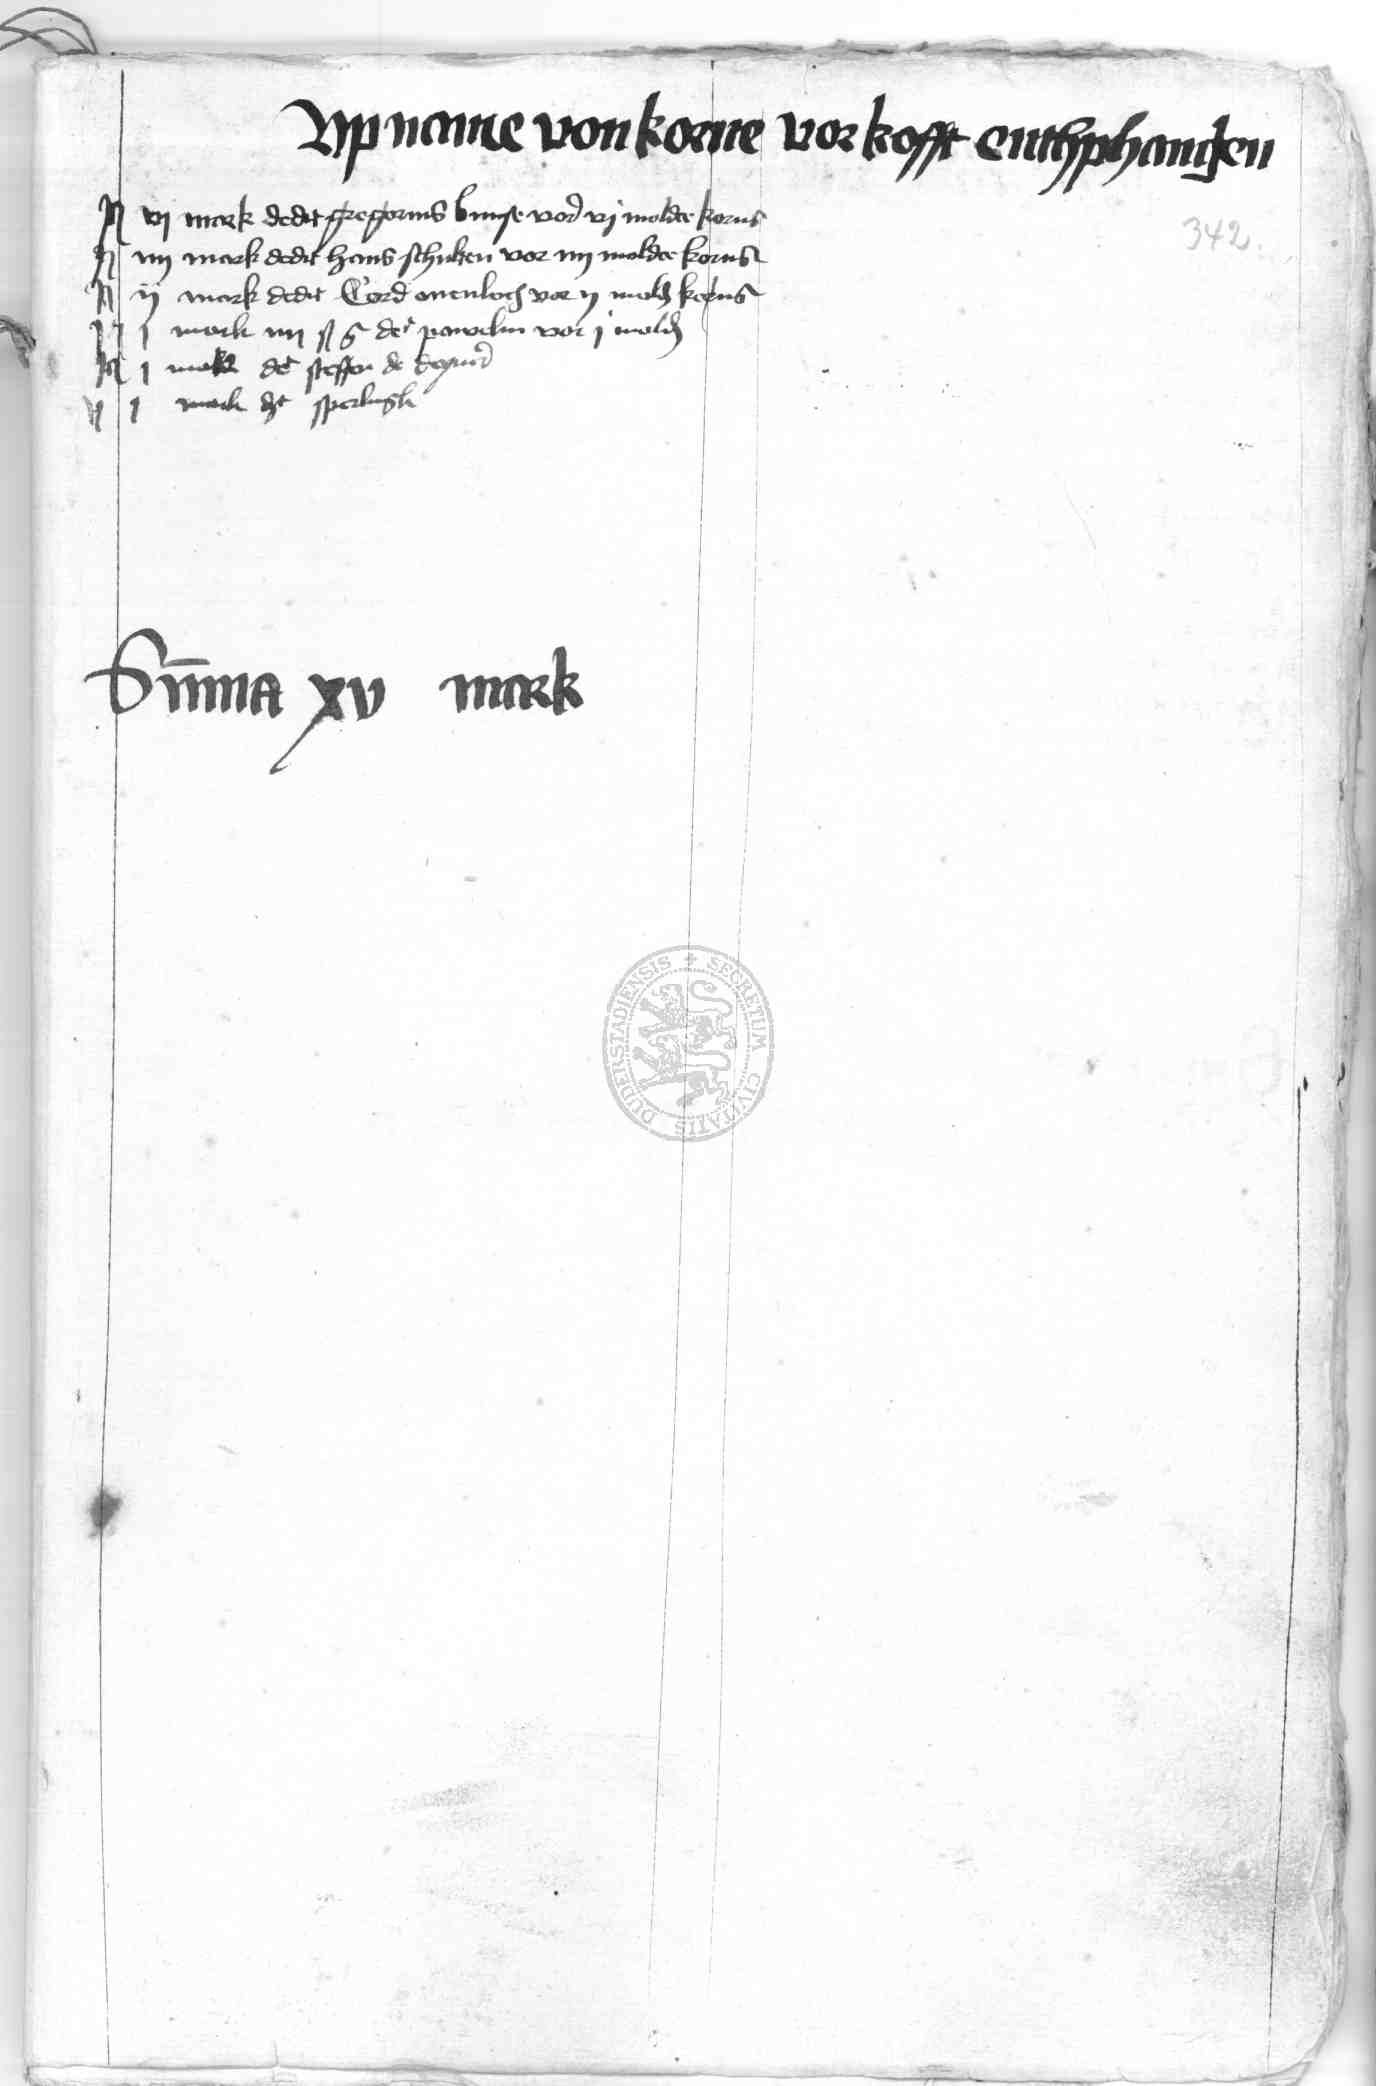 Upname von korne vorkofft enthphangen
342.
vj mark dedit gregorius buse vor vj molder korns
iiij mark dedit hans schuken vor iiij molder korns
ij mark dedit Cord ouenloch vor ij mold korns
j mark iiij ß det pawelin vor j mold
j mark det steffen de
j mark dt sperlingk
Summa xv mark
SECRETUM CIVITATIS DUDERSTADIENSIS